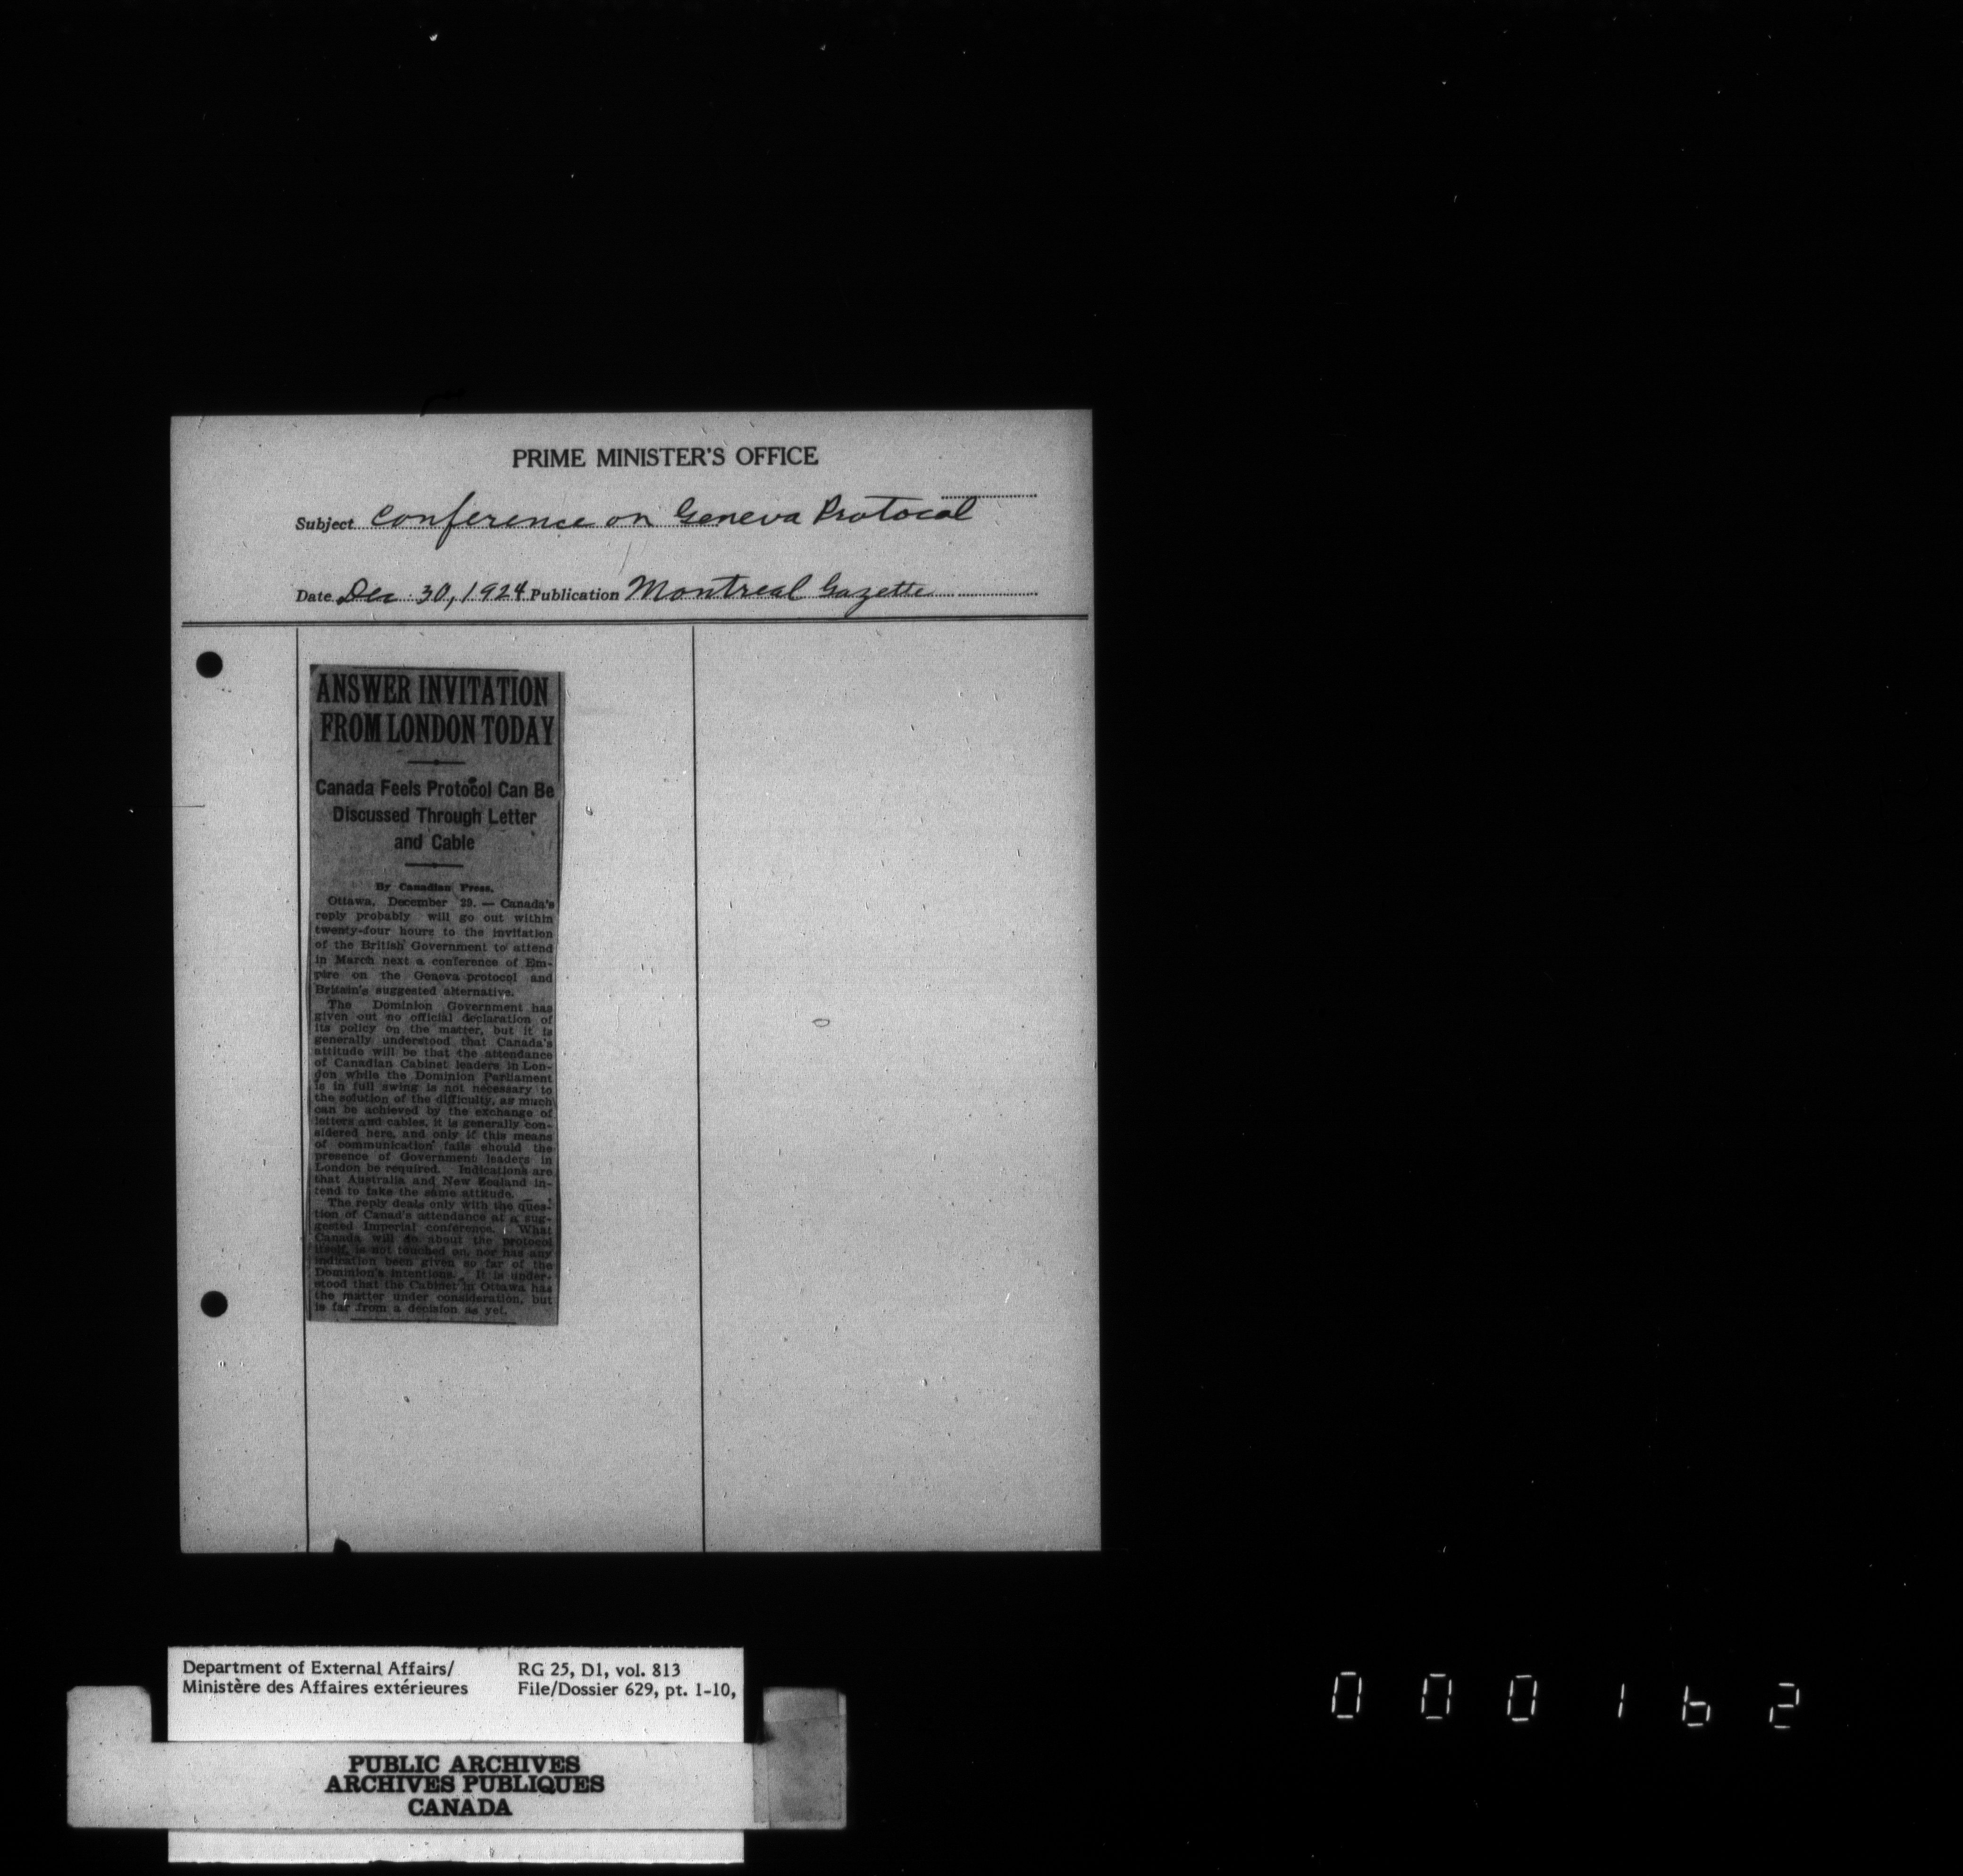 PRIME MINISTER'S OFFICE
Subject Conference on Geneva Protocal
Date Dec 30, 1924 Publication Montreal Gazette
ANSWER INVITATION
FROM LONDON TODAY
Canada Feels Protocol Can Be
Discussed Through Letter
and Cable
By Canadian Press.
Ottawa, December 29. — Canada's
reply probably will go out within
twenty-four hours to the invitation
of the British Government to attend
in March next a conference of Em-
pire on the Geneva protocol and
Britain's suggested alternative.
The Dominion Government has
given out no official declaration of
its policy on the matter, but it is
generally understood that Canada's
attitude will be that the attendance
of Canadian Cabinet leaders in Lon-
don while the Dominion Parliament
is in full swing is not necessary to
the solution of the difficulty, as much
can be achieved by the exchange of
letters and cables, it is generally con-
sidered here, and only if this means
of communication fails should the
presence of Government leaders in
London be required. Indications are
that Australia and New Zealand in-
tend to take the same attitude.
The reply deals only with the ques-
tion of Canad's attendance at a sug-
gested Imperial conference. What
Canada will do about the protocol
itself, is not touched on, nor has any
indication been given so far of the
Dominion's intentions. It is under-
stood that the Cabinet in Ottawa has
the matter under consideration, but
is far from a decision as yet.
Department of External Affairs/
Ministère des Affaires extérieures
RG 25, D1, vol. 813
File/Dossier 629, pt. 1-10,
PUBLIC ARCHIVES
ARCHIVES PUBLIQUES
CANADA
000162